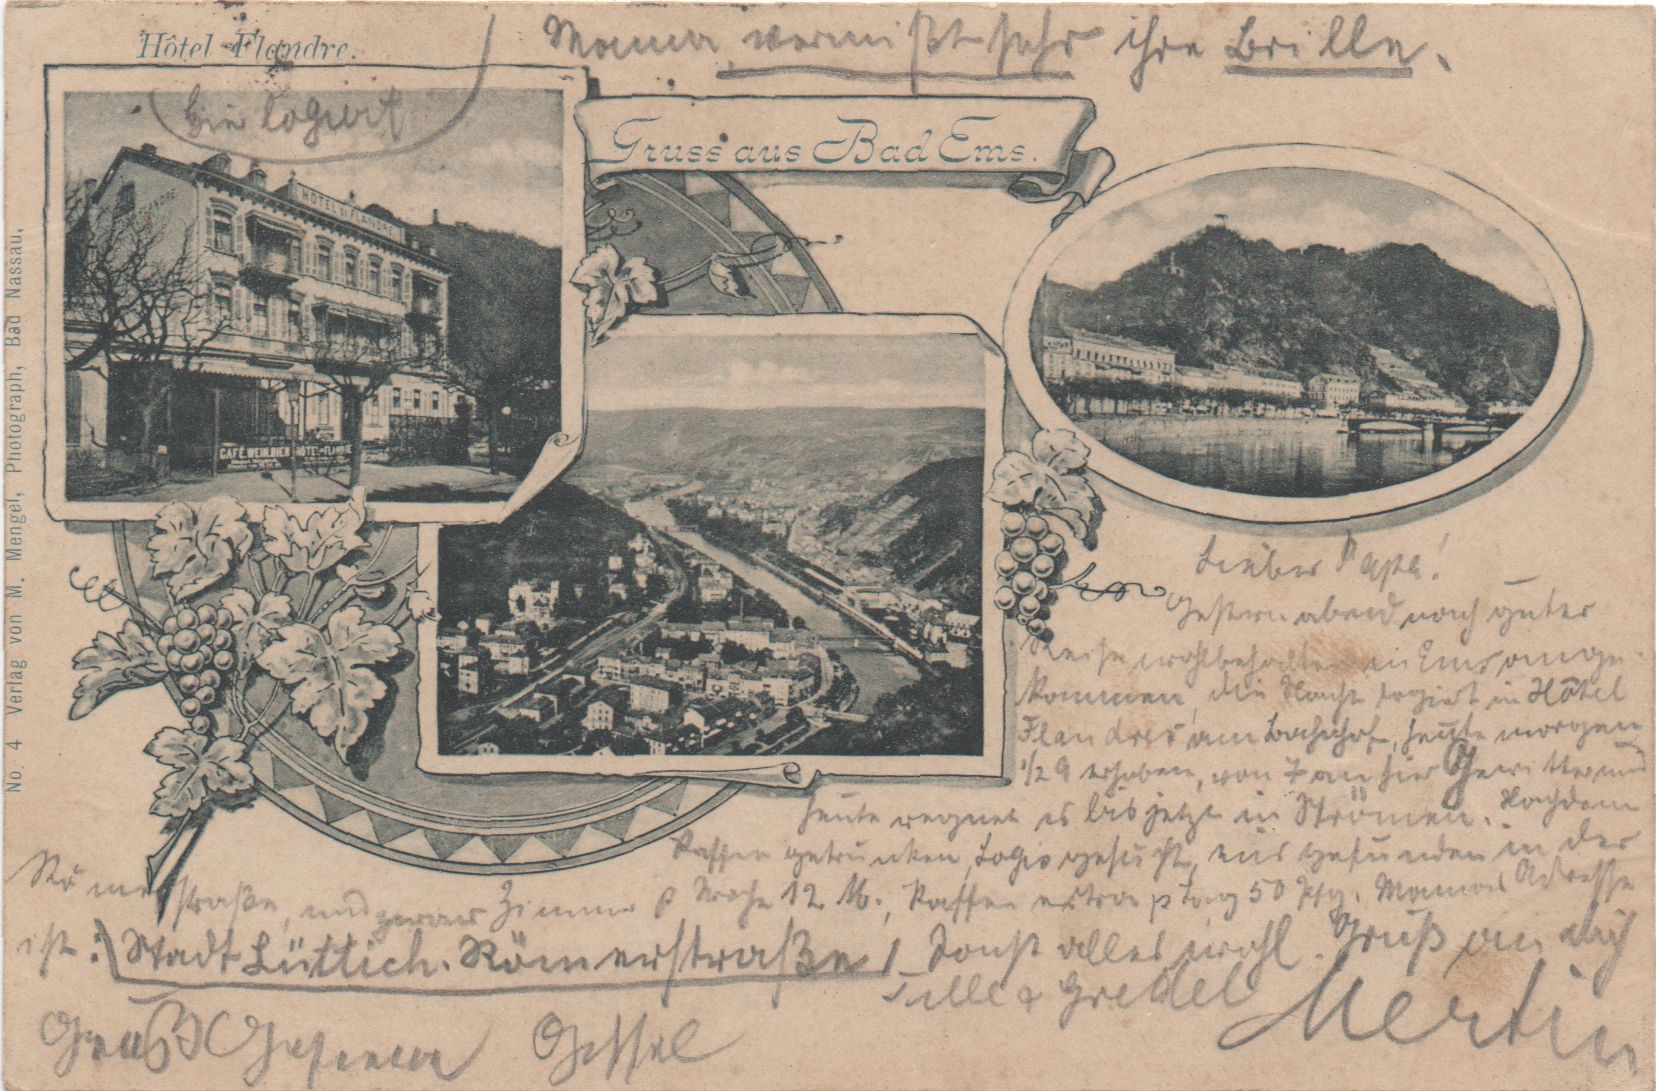 Hôtel Flandre.
Mama vermißt sehr ihre Brille.
hier logiert
Gruss aus Bad Ems.
HÔTEL DE FLANDRE
CAFÉ, WEIN, BIER HÔTEL FLANDRE
No. 4 Verlag von M. Mengel, Photograph, Bad Nassau.
Lieber Papa!
Gestern abend nach guter
Reise wohlbehalten in Ems ange-
kommen, die Nacht logiert in Hôtel
Flandres am Bahnhof, heute morgen
1/2 9 erhoben, von 7 an hier Gewitter und
heute regnet es bis jetzt in Strömen. Nachdem
Kaffee getrunken, Logis gesucht, eins gefunden in der
Römerstraße, und zwar Zimmer p Woche 12 M., Kaffee extra p Tag 50 Pfg. Mamas Adresse
ist: Stadt Lüttich. Römerstraße! Sonst alles wohl. Gruß an dich
& Gretel
Martin
Gruß